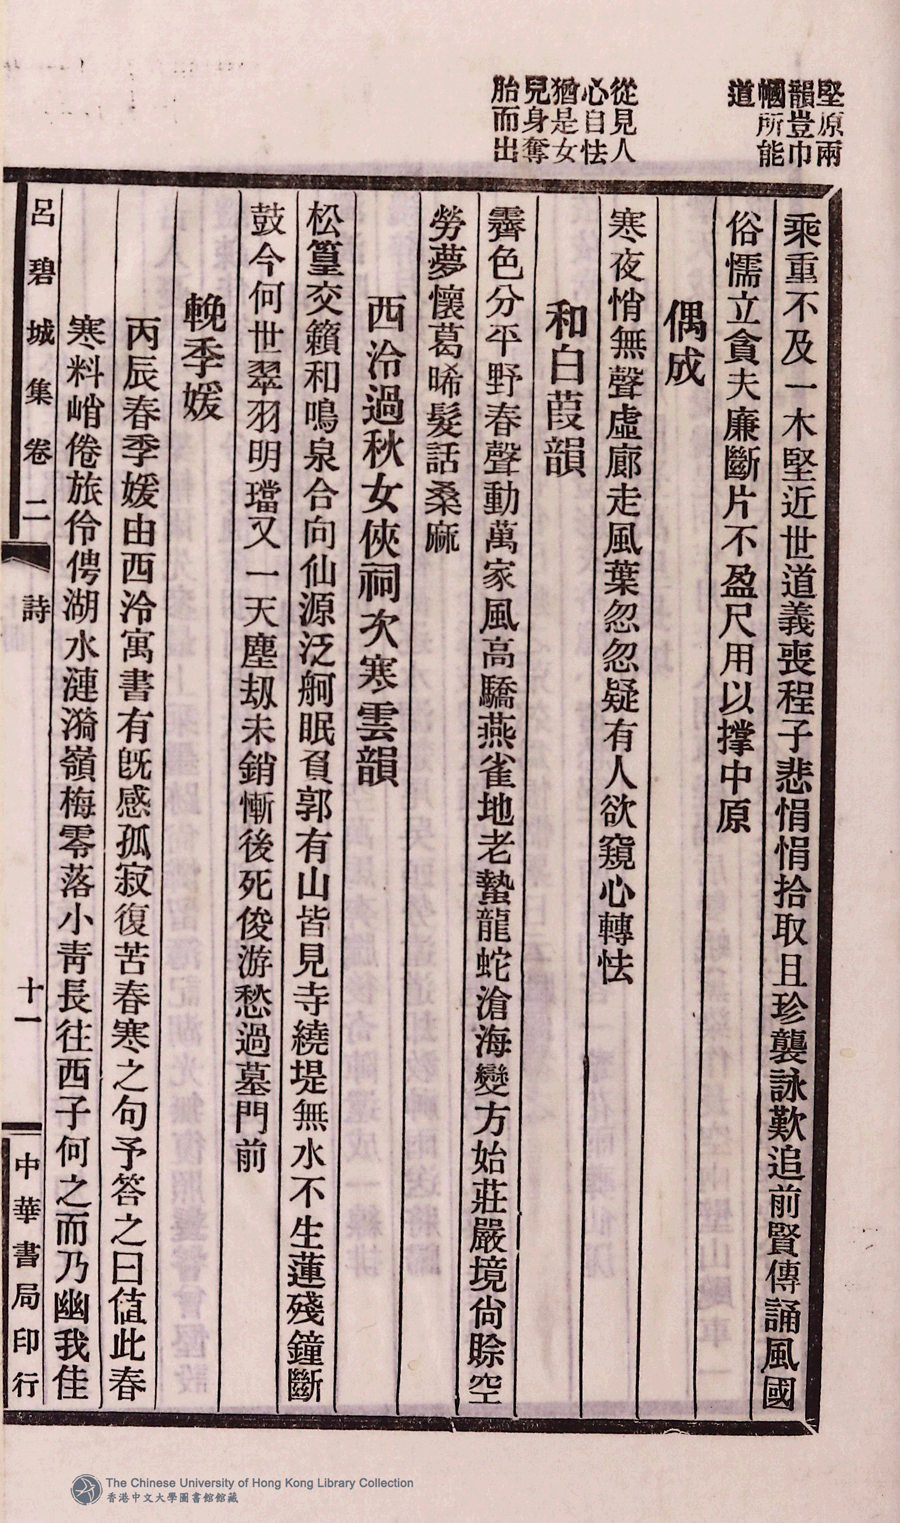 堅原兩
韻豈巾
幗所能
道
從見人
心自怯
猶是女
兒身奪
胎而出
乘重不及一木堅近世道義喪程子悲悁悁拾取且珍襲詠歎追前賢傳誦風國
俗懦立貪夫廉斷片不盈尺用以撐中原
偶成
寒夜悄無聲虛廊走風葉忽忽疑有人欲窺心轉怯
和白葭韻
霽色分平野春聲動萬家風高驕燕雀地老蟄龍蛇滄海變方始莊嚴境尙賒空
勞夢懷葛晞髮話桑麻
西泠過秋女俠祠次寒雲韻
松篁交籟和鳴泉合向仙源泛舸眠負郭有山皆見寺繞堤無水不生蓮殘鐘斷
鼓今何世翠羽明璫又一天塵刼未銷慚後死俊游愁過墓門前
輓季媛
丙辰春季媛由西泠寓書有旣感孤寂復苦春寒之句予答之曰値此春
寒料峭倦旅伶俜湖水漣漪嶺梅零落小靑長往西子何之而乃幽我佳
呂碧城集卷二
詩
十一
中華書局印行
The Chinese University of Hong Kong Library Collection
香港中文大學圖書館館藏